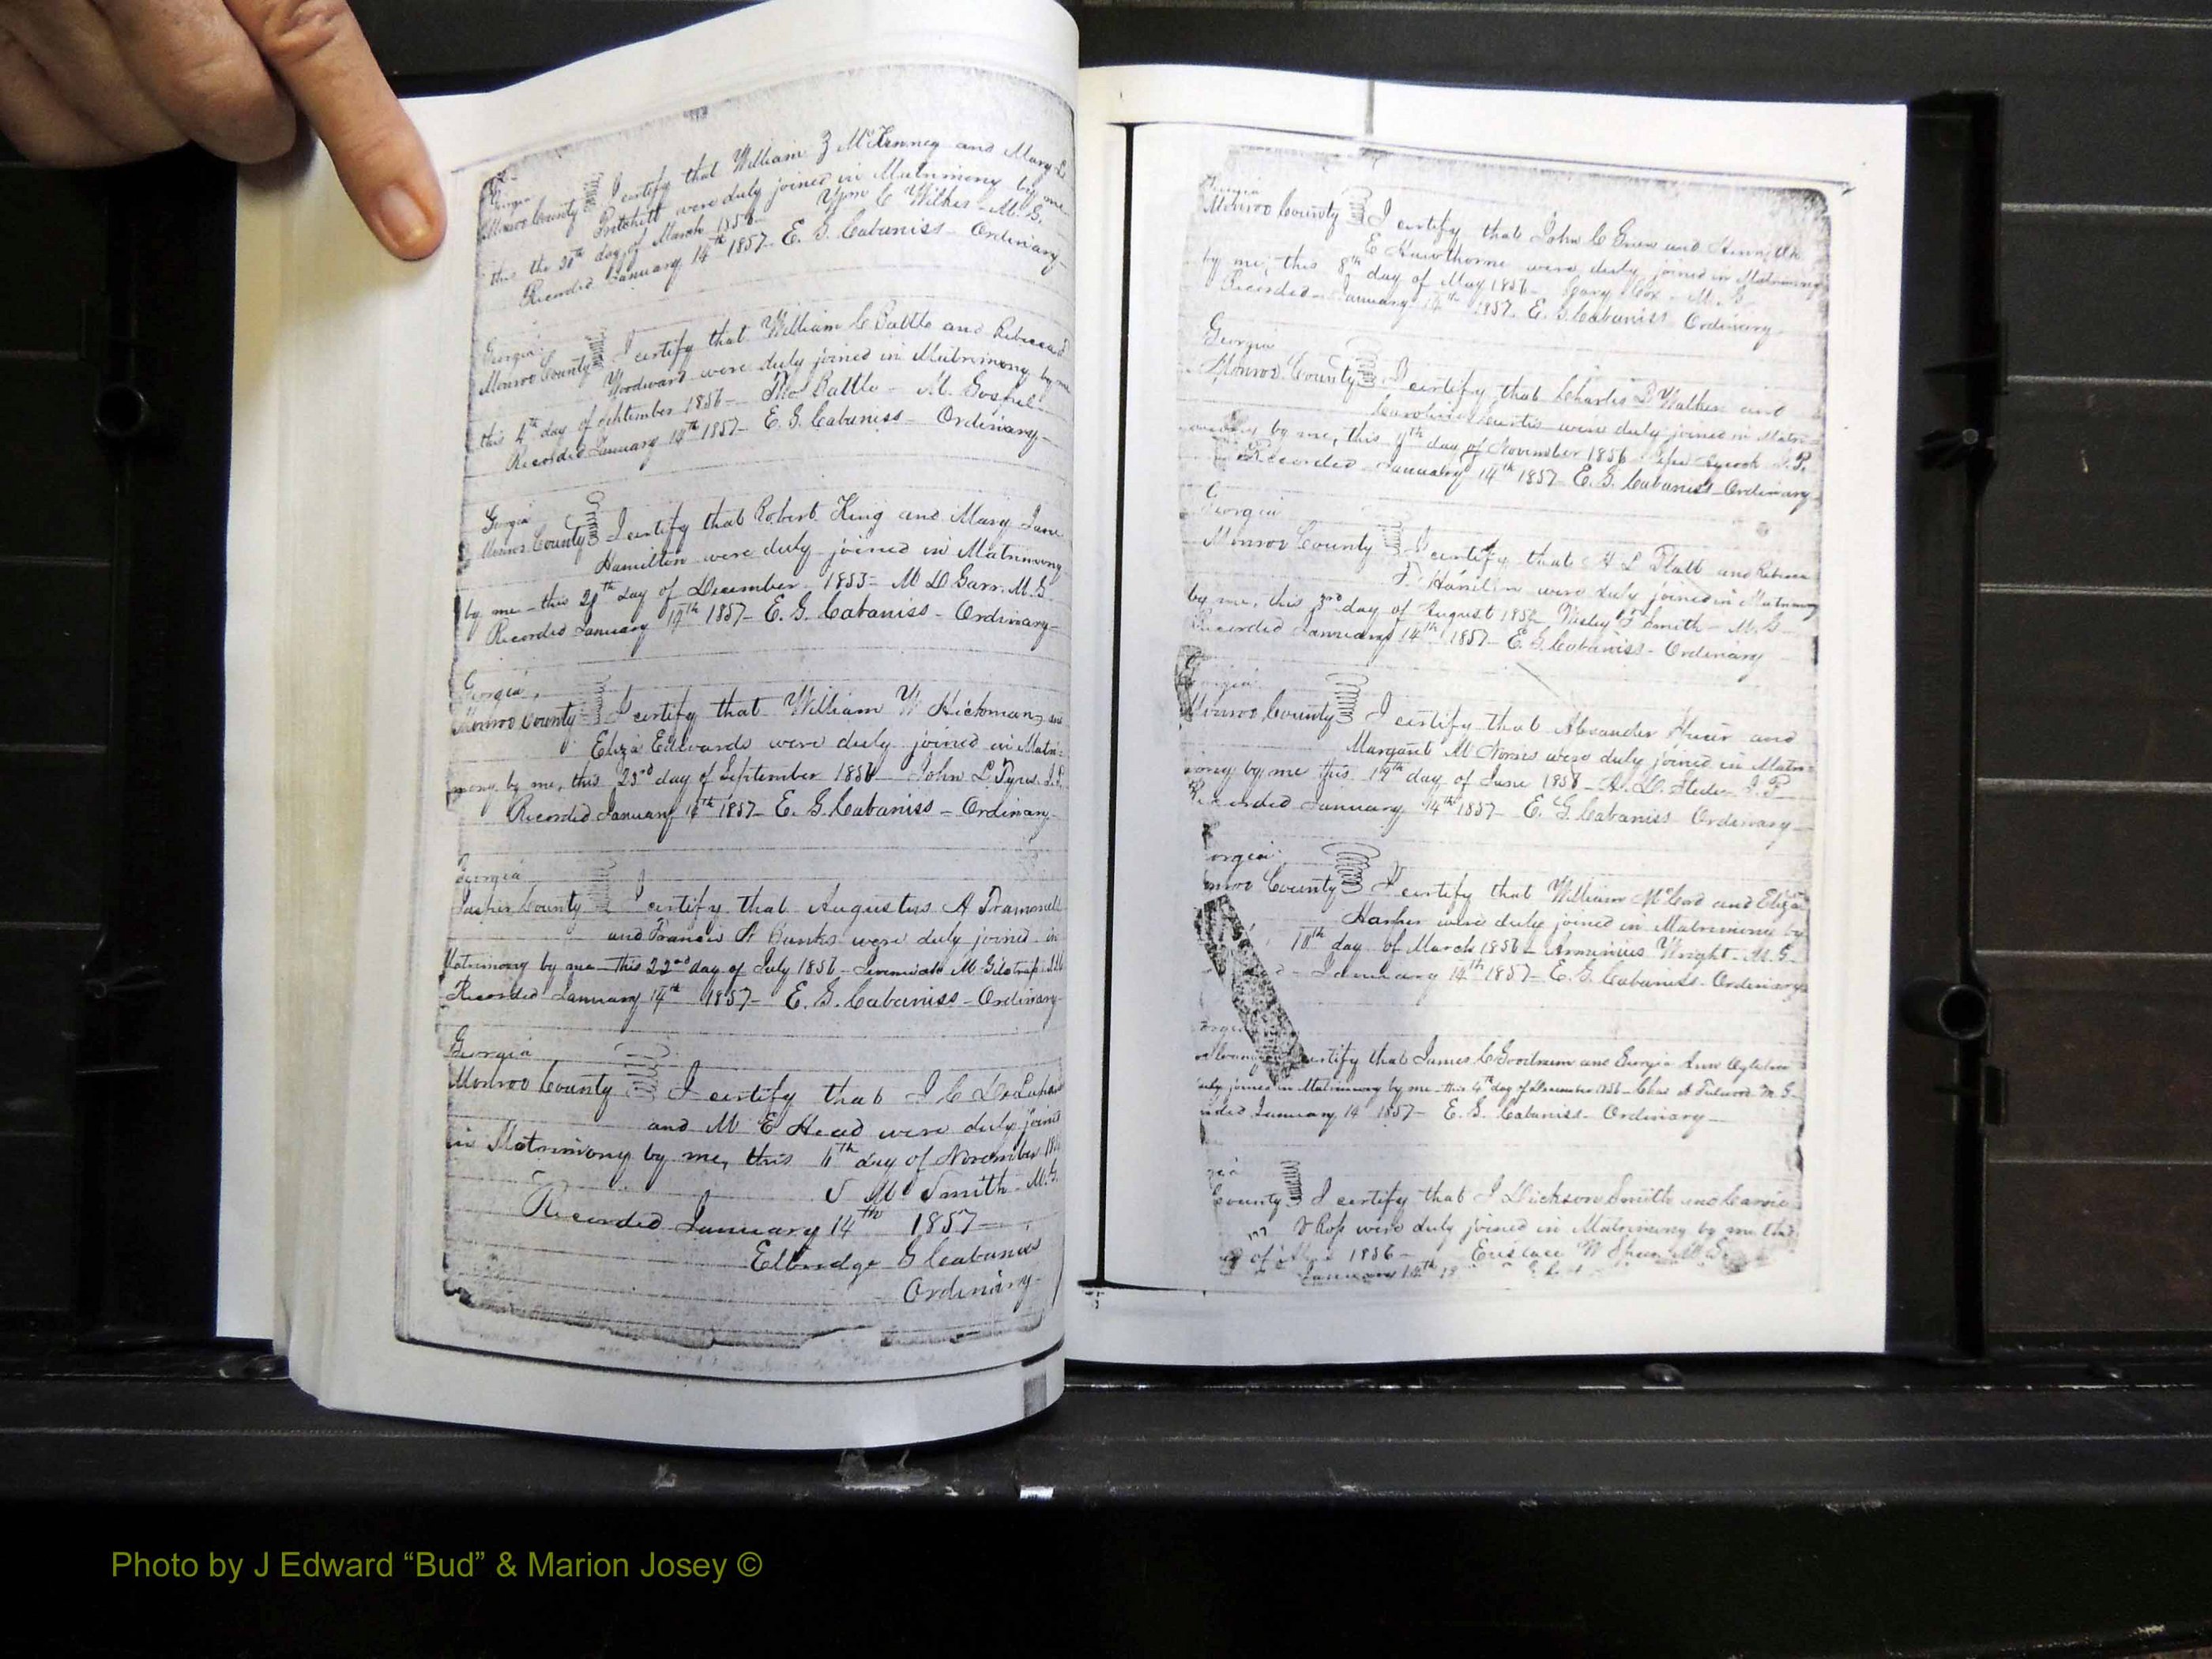 Georgia
Monroe County I certify that William Z McKenney and Mary L
Pritchett were duly joined in Matrimony by me
this the 30th day of March 1856 Wm C Wilkes - M. G.
Recorded January 14th 1857 - E. G. Cabaniss - Ordinary -
Georgia
Monroe County I certify that William C Battle and Rebecca
Woodward were duly joined in Matrimony by me
this 4th day of September 1856 - Tho Battle - M. Gospel -
Recorded January 14th 1857 - E. G. Cabaniss - Ordinary -
Georgia
Monroe County I certify that Robert King and Mary Jane
Hamilton were duly joined in Matrimony
by me - this day of December 1853 - M. G.
Recorded January 14th 1857 - E. G. Cabaniss - Ordinary -
Georgia
Monroe County I certify that William W Hickman
Eliza Edwards were duly joined in Matri-
mony by me, this 23rd day of September 1856 John L
Recorded January 14th 1857 - E. G. Cabaniss - Ordinary -
Georgia
Jasper County I certify that Augustus A Trammell
and Francis A Banks were duly joined in
Matrimony by me this 22nd day of July 1856 - Jeremiah M Gilstrap
Recorded January 14th 1857 - E. G. Cabaniss - Ordinary
Georgia
Monroe County I certify that J C
and M E Head were duly joined
in Matrimony by me, this 11th day of November
J M Smith - M. G.
Recorded January 14th 1857 -
Elbridge G Cabaniss
Ordinary -
Georgia
Monroe County I certify that John C and
E Hawthorne were duly joined in Matrimony
by me, this 8th day of May 1856 - Cary Cox - M. G.
Recorded - January 14th 1857. E. G. Cabaniss Ordinary -
Georgia
Monroe County I certify that Charles D Walker and
Caroline Curtis were duly joined in Matri-
by me, this day of November 1856 J. P.
Recorded January 14th 1857 E. G. Cabaniss Ordinary
Georgia
Monroe County I certify that A L Platt and Rebecca
were duly joined in Matrimony
by me, this 3rd day of August 1856 Wesley F Smith - M. G. -
Recorded January 14th 1857 - E. G. Cabaniss - Ordinary
Georgia
Monroe County I certify that Alexander and
Margaret M Norris were duly joined in Matri-
mony by me this 19th day of June 1856 - J. P.
Recorded January 14th 1857 - E. G. Cabaniss Ordinary -
orgia
County I certify that William McCord and Eliza
were duly joined in Matrimony by
10th day of March 1856 - Arminius Wright - M. G.
January 14th 1857 - E. G. Cabaniss - Ordinary
certify that James C Goodrum and Georgia Ann
duly joined in Matrimony by me this 4th day of December 1856 - Chas A Fulwood M. G.
January 14 1857 - E. G. Cabaniss - Ordinary -
County I certify that J Dickson Smith and
were duly joined in Matrimony by me this
of 1856 - Eustace W Speer M. G.
January 14th
Photo by J Edward “Bud” & Marion Josey ©